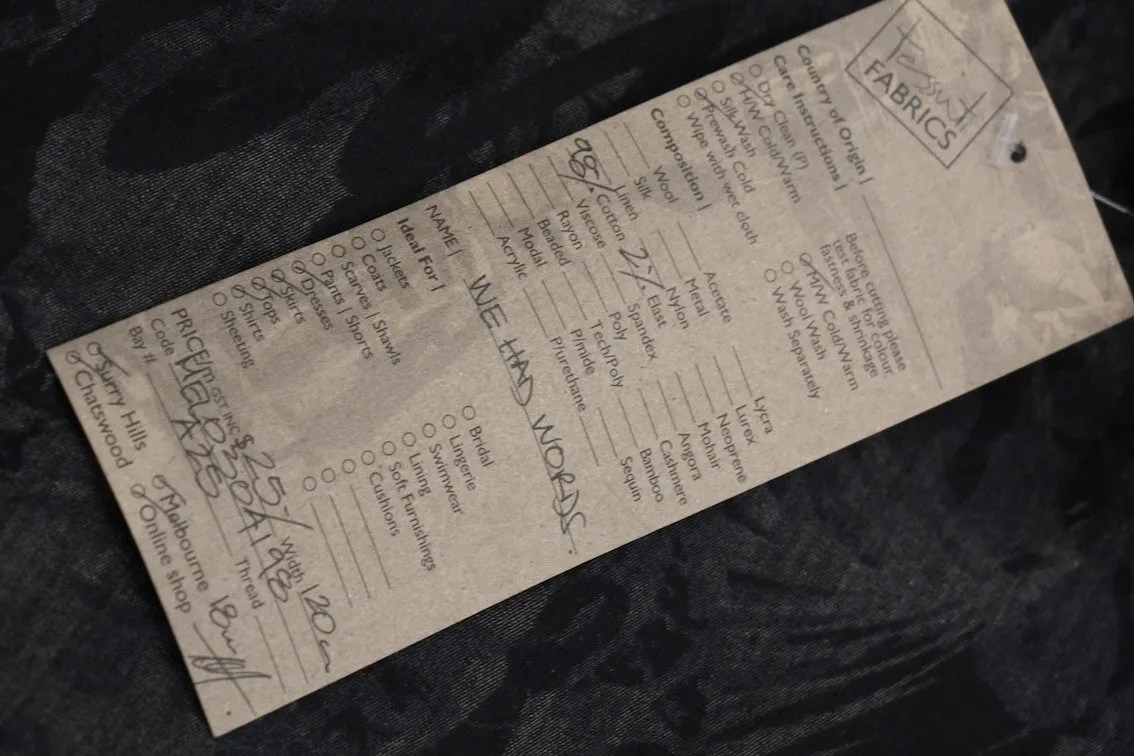 tessuti
FABRICS
Country of Origin |
Care Instructions |
Dry Clean (P)
H/W Cold/Warm
Silk Wash
Prewash Cold
Wipe with wet cloth
Before cutting please
test fabric for colour
fastness & shrinkage
M/W Cold/Warm
Wool Wash
Wash Separately
Composition |
Wool
Silk
Linen
98% Cotton
Viscose
Rayon
Beaded
Modal
Acrylic
Acetate
Metal
Nylon
2% Elast
Spandex
Poly
Tech/Poly
P/mide
P/urethane
Lycra
Lurex
Neoprene
Mohair
Angora
Cashmere
Bamboo
Sequin
NAME | WE HAD WORDS.
Ideal For |
Jackets
Coats
Scarves | Shawls
Pants | Shorts
Dresses
Skirts
Tops
Shirts
Sheeting
Bridal
Lingerie
Swimwear
Lining
Soft Furnishings
Cushions
PRICE/m GST INC $ 25-/ Width 120cm
Code
Bay # A26 Thread
Surry Hills
Chatswood
Melbourne
Online shop